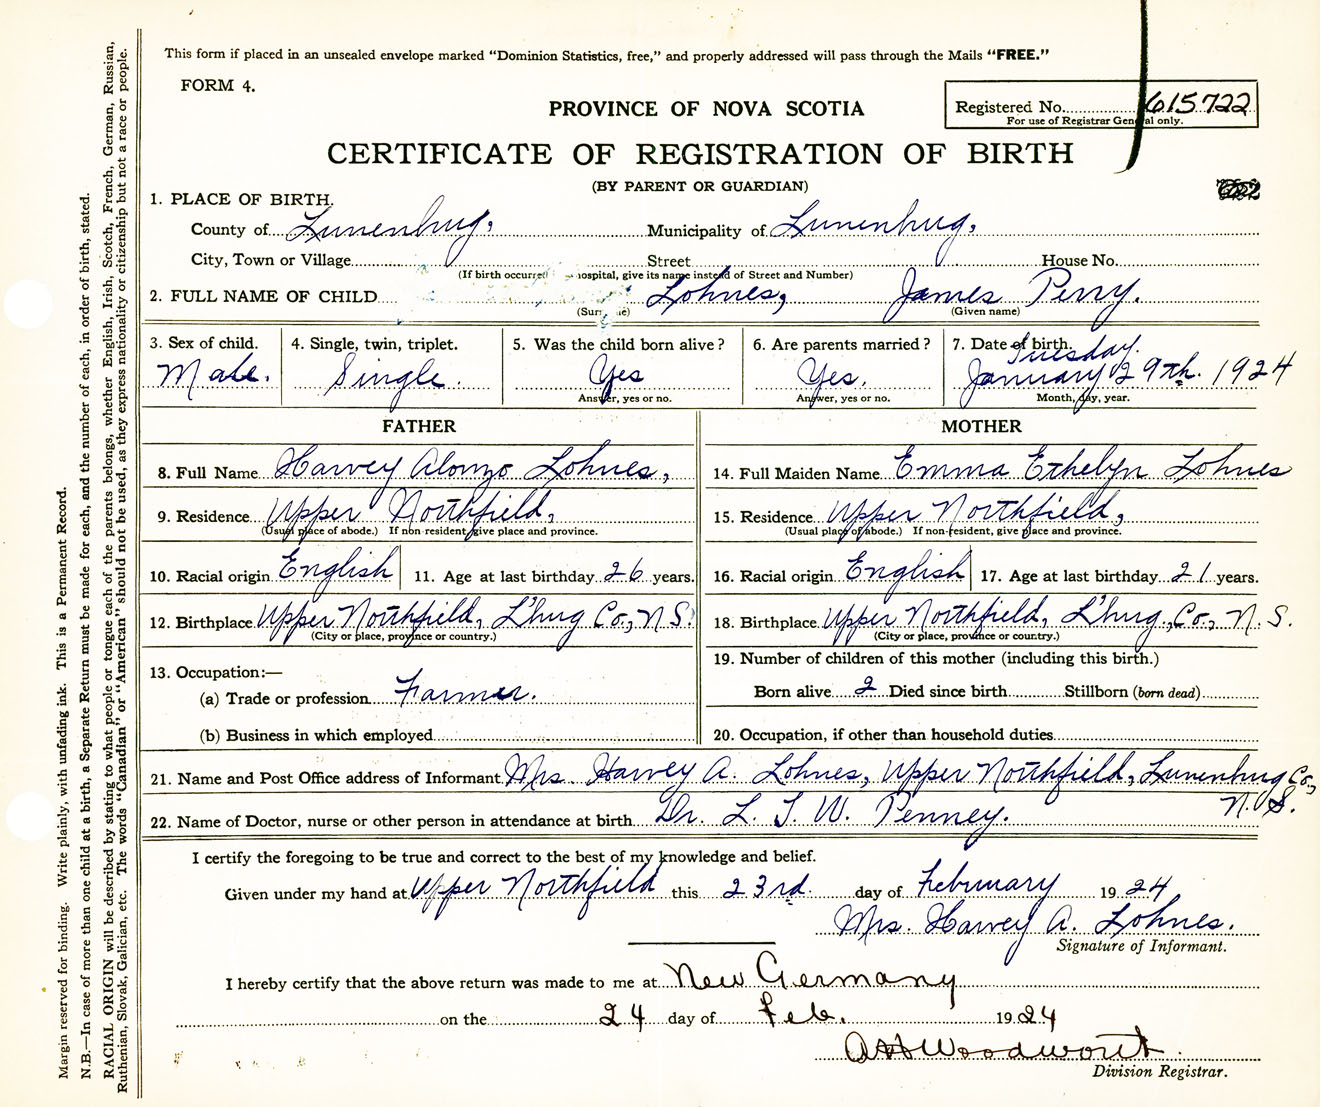 This form if placed in an unsealed envelope marked "Dominion Statistics, free," and properly addressed will pass through the Mails "FREE."
FORM 4.
PROVINCE OF NOVA SCOTIA
Registered No. 615722
For use of Registrar General only.
CERTIFICATE OF REGISTRATION OF BIRTH
(BY PARENT OR GUARDIAN)
1. PLACE OF BIRTH.
County of Lunenburg, Municipality of Lunenburg,
City, Town or Village Street House No.
(If birth occurred hospital, give its name instead of Street and Number)
2. FULL NAME OF CHILD Lohnes, James Perry.
(Given name)
3. Sex of child. 4. Single, twin, triplet. 5. Was the child born alive? 6. Are parents married? 7. Date of birth.
Tuesday.
Male. Single. Yes Yes. January 29th. 1924
Answer, yes or no. Answer, yes or no. Month, day, year.
FATHER MOTHER
8. Full Name Harvey Alonzo Lohnes, 14. Full Maiden Name Emma Ethelyn Lohnes
9. Residence Upper Northfield, 15. Residence Upper Northfield,
(Usual place of abode.) If non-resident, give place and province. (Usual place of abode.) If non-resident, give place and province.
10. Racial origin English 11. Age at last birthday 26 years. 16. Racial origin English 17. Age at last birthday 21 years.
12. Birthplace Upper Northfield, L'burg Co., N.S. 18. Birthplace Upper Northfield, L'burg., Co., N.S.
(City or place, province or country.) (City or place, province or country.)
13. Occupation:—
(a) Trade or profession Farmer.
(b) Business in which employed
19. Number of children of this mother (including this birth.)
Born alive 2 Died since birth Stillborn (born dead)
20. Occupation, if other than household duties
21. Name and Post Office address of Informant Mrs Harvey A. Lohnes, Upper Northfield, Lunenburg Co.,
N.S.
22. Name of Doctor, nurse or other person in attendance at birth Dr. L. T. W. Penney.
I certify the foregoing to be true and correct to the best of my knowledge and belief.
Given under my hand at Upper Northfield this 23rd. day of February 1924
Mrs. Harvey A. Lohnes.
Signature of Informant.
I hereby certify that the above return was made to me at New Germany
on the 24 day of Feb. 1924
Woodworth.
Division Registrar.
Margin reserved for binding. Write plainly, with unfading ink. This is a Permanent Record.
N.B.—In case of more than one child at a birth, a Separate Return must be made for each, and the number of each, in order of birth, stated.
RACIAL ORIGIN will be described by stating to what people or tongue each of the parents belongs, whether English, Irish, Scotch, French, German, Russian,
Ruthenian, Slovak, Galician, etc. The words "Canadian" or "American" should not be used, as they express nationality or citizenship but not a race or people.